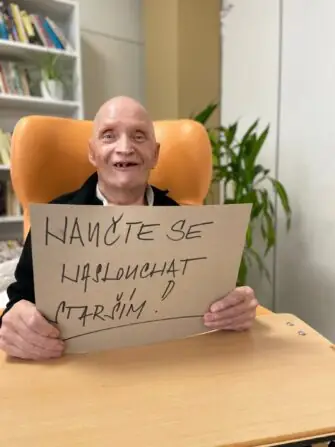 NAUČTE SE
NASLOUCHAT
STARŠÍM!